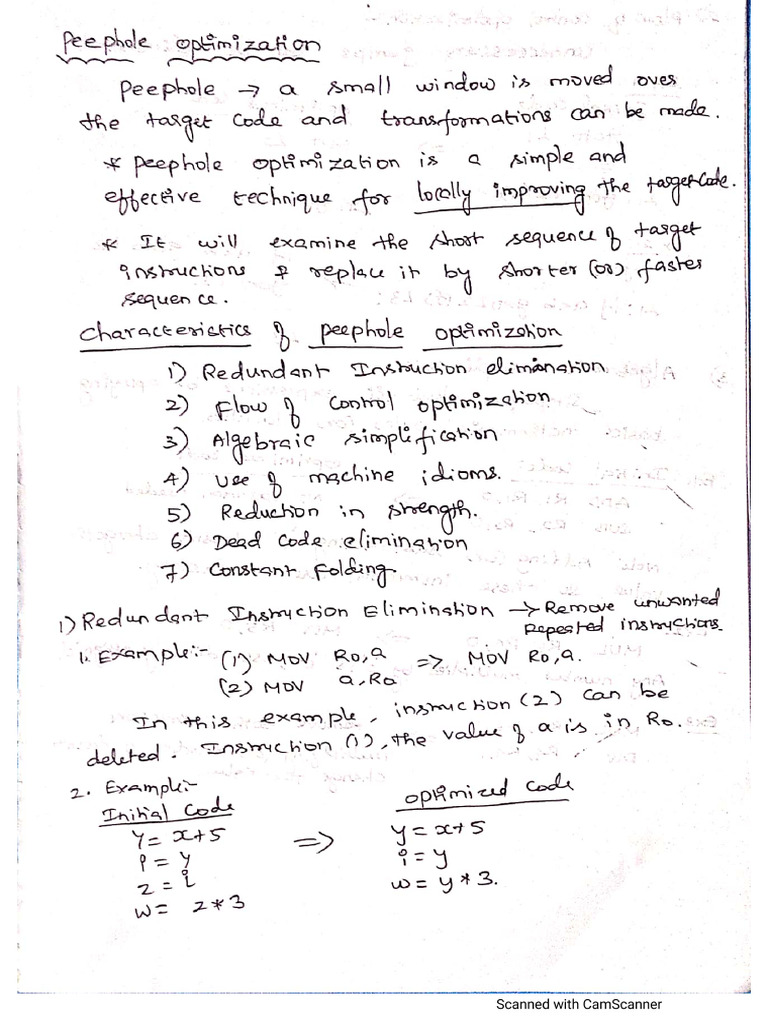 Peephole optimization
Peephole → a small window is moved over
the target code and transformations can be made.
* Peephole optimization is a simple and
effective technique for locally improving the target code.
* It will examine the short sequence of target
instructions & replace it by shorter (or) faster
sequence.
Characteristics of peephole optimization
1) Redundant Instruction elimination
2) Flow of Control optimization
3) Algebraic simplification
4) Use of machine idioms.
5) Reduction in strength.
6) Dead code elimination
7) Constant folding.
1) Redundant Instruction Elimination → Remove unwanted
Repeated instructions.
1. Example:- (1) MOV R0,a => MOV R0,a.
(2) MOV a,R0
In this example, instruction (2) can be
deleted. Instruction (1), the value of a is in R0.
2. Example:-
Initial Code optimized code
y = x+5 => y = x+5
i = y i = y
z = i w = y * 3.
w = z * 3
Scanned with CamScanner